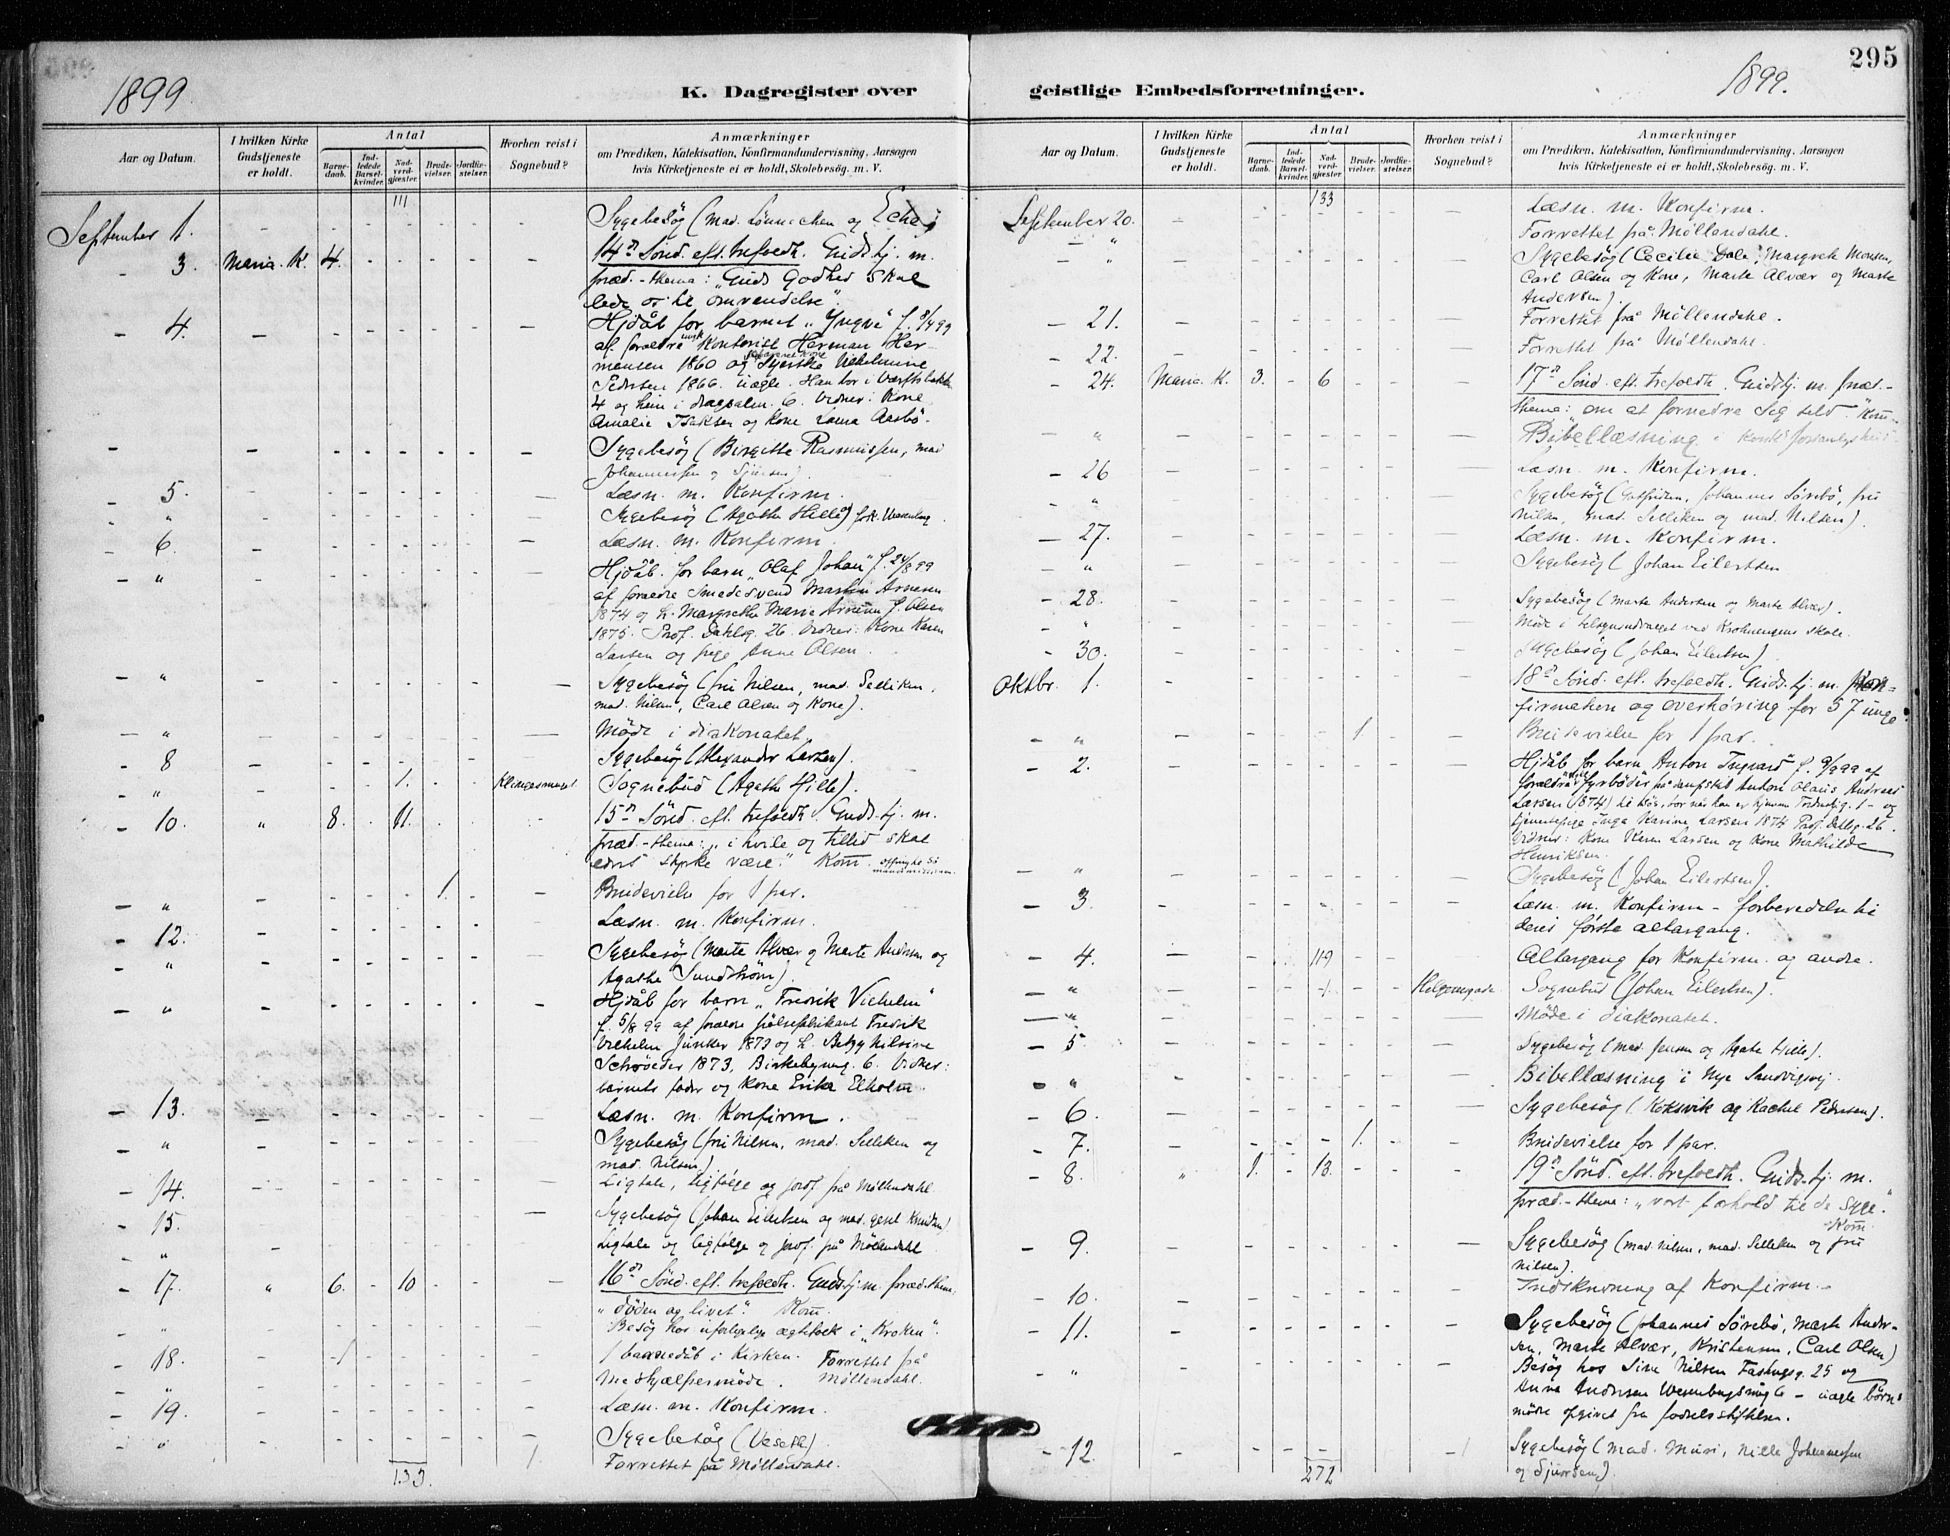 295
1899
K. Dagregister over
Aar og Datum.
I hvilken Kirke
Gudstjeneste
er holdt.
Antal
Barne-
daab.
Ind-
ledede
Barsel-
kvinder.
Nad-
verd-
gjester.
Brude-
vielser.
Jordfæ-
stelser.
Hvorhen reist i
Sognebud?
Anmærkninger
om Prædiken, Katekisation, Konfirmandundervisning, Aarsagen
hvis Kirketjeneste ei er holdt, Skolebesøg. m. V.
111
September 1. Sygebesög (mad. Lönnechen og
3. Maria K. 4. 14de Sönd. eft. trefoedh. Gudstj. m.
præd. - thema: "Guds Godhed skal
lede os til omvendelse".
4. Hjdåb for barnet "Yngve" f.
af forældre Kontorist Herman Her-
mansen 1860 og Syerske Vilhelmine
Pedersen 1866 uægte. Han bor i
4 og hun i dragsalm. 6. Vidner: Kone
Amalie Isaksen og Kone Laura Aasbö.
Sygebesög (Birgitte Rasmussen, mad
Johannessen og Sjursen)
5. Læsn. m. Konfirm.
" Sygebesög (Agathe Hille)
6. Læsn. m. Konfirm.
" Hjdåb. for barn "Olaf Johan" f. 24/8 99
af forældre Smedesvend Martin Arnesen
1874 og h. Margrethe Marie Arnesen f. Olsen
1875. Prof. Dahlsg. 26. Vidner: Kone Karen
Larsen og pige Anne Olsen.
" Sygebesög (fru Nilsen, mad. Selliken,
mad. Nilsen, Carl Olsen og Kone).
" Möde i diakonatet.
8 Sygebesög (Alexander Larsen).
" 1. Sognebud (Agathe Hille).
10. " 8. 11. 15de Sönd. eft. trefoedh. Gudstj. m.
præd. - thema: "i hvile og tillid skal
eders styrke være." Kom.
" 1. Brudevielse for 1 par.
12. Læsn. m. Konfirm.
" Sygebesög (Marte Alvær og Marte Andersen og
Agathe Sundström).
" Hjdåb for barn "Fredrik Vilhelm"
f. 5/8 99 af forældre Fredrik
Vilhelm Junker 1873 og h. Betzy Nilsine
Schröeder 1873, Birkebeynerg. 6. Vidner:
barnets fader og Kone Erika Elholm.
13. Læsn. m. Konfirm.
" Sygebesög (fru Nilsen, mad. Selliken og
mad. Nilsen)
14. Ligtale, ligfølge og jordf. på Möllendahl.
15. Sygebesög (Johan Eilertsen og mad. Knudsen)
" Ligtale og ligfølge og jordf. på Möllendahl
17. " 6. 10 16de Sönd. eft. trefoedh. Gudstj. m. præd. thema,
"döden og livet". Kom.
" Besög hos ægtefolk i "Kroken".
18. 1 1 barnedåb i Kirken. Forrettet på
" Möllendahl.
19. Læsn. m. Konfirm.
" Sygebesög
Forrettet på Möllendahl.
133.
geistlige Embedsforretninger.
1899.
Aar og Datum.
I hvilken Kirke
Gudstjeneste
er holdt.
Antal
Barne-
daab.
Ind-
ledede
Barsel-
kvinder.
Nad-
verd-
gjester.
Brude-
vielser.
Jordfæ-
stelser.
Hvorhen reist i
Sognebud?
Anmærkninger
om Prædiken, Katekisation, Konfirmandundervisning, Aarsagen
hvis Kirketjeneste ei er holdt, Skolebesøg. m. V.
133
September 20. Læsn. m. Konfirm.
Forrettet på Möllendahl.
" Sygebesög (Cecilie Dale, Margrete Monsen,
Carl Olsen og Kone, Marte Alvær og Marte
Andersen).
21. Forrettet på Möllendahl.
22. Forrettet på Möllendahl.
24. Maria K. 3. 6 17de Sönd. eft. trefoedh. Gudstj. m. præd.-
thema: "om at fornedre seg selv". Kom.
" Bibellæsning i
26 Læsn. m. Konfirm.
" Sygebesög (Johannes Sörebö, fru
Nilsen, mad. Selliken og mad. Nilsen).
27. Læsn. m. Konfirm.
" Sygebesög (Johan Eilertsen
28. Sygebesög (Marte Andersen og Marte Alvær).
" Möde i tilsynsudvalget ved Krohnengens skole.
30. Sygebesög (Johan Eilertsen)
Oktbr. 1. 18de Sönd. eft. trefoedh. Gudstj. m. Kon-
firmation og overhöring for 57 unge.
" 1. Brudevielse for 1 par.
2. Hjdåb for barn Anton Ingvard f. 9/9 99 af
forældre Fyrböder på Anton Olaus Andreas
Larsen (1874) hjemme - og
tjenestepige Inga Karine Larsen 1874 Prof. Dahlsg. 26.
Vidner: Kone Karen Larsen og Kone Mathilde
Henriksen.
" Sygebesög (Johan Eilertsen).
3. Læsn. m. Konfirm - forberedelse til
deres förste altargang.
4. 119 Altargang for Konfirm. og andre.
" 1. Sognebud (Johan Eilertsen).
" Möde i diakonatet.
5 Sygebesög (mad. Jensen og Agate Hille).
" Bibellæsning i Nye Sandvigsvej.
6. Sygebesög (Koksvik og Rachel Pedersen).
7. 1. Brudevielse for 1 par.
8. " 1. 13. 19de Sönd. eft. trefoedh. Gudstj. m.
præd. - thema: "vort forhold til de syge."
Kom.
9. Sygebesög (mad. Nilsen, mad. Selliken og fru
Nilsen).
10. Indskrivning af Konfirm.
11. Sygebesög (Johannes Sörebö, Marte Ander-
sen, Marte Alvær, Kristensen, Carl Olsen)
" Besög hos Sina Nilsen 25 og
Anna Andersen 6 - uægte börns
mödre opgivet fra födselsstiftelsen.
12. Sygebesög (Mad. Muri, Nille Johannessen
og Sjursen).
272